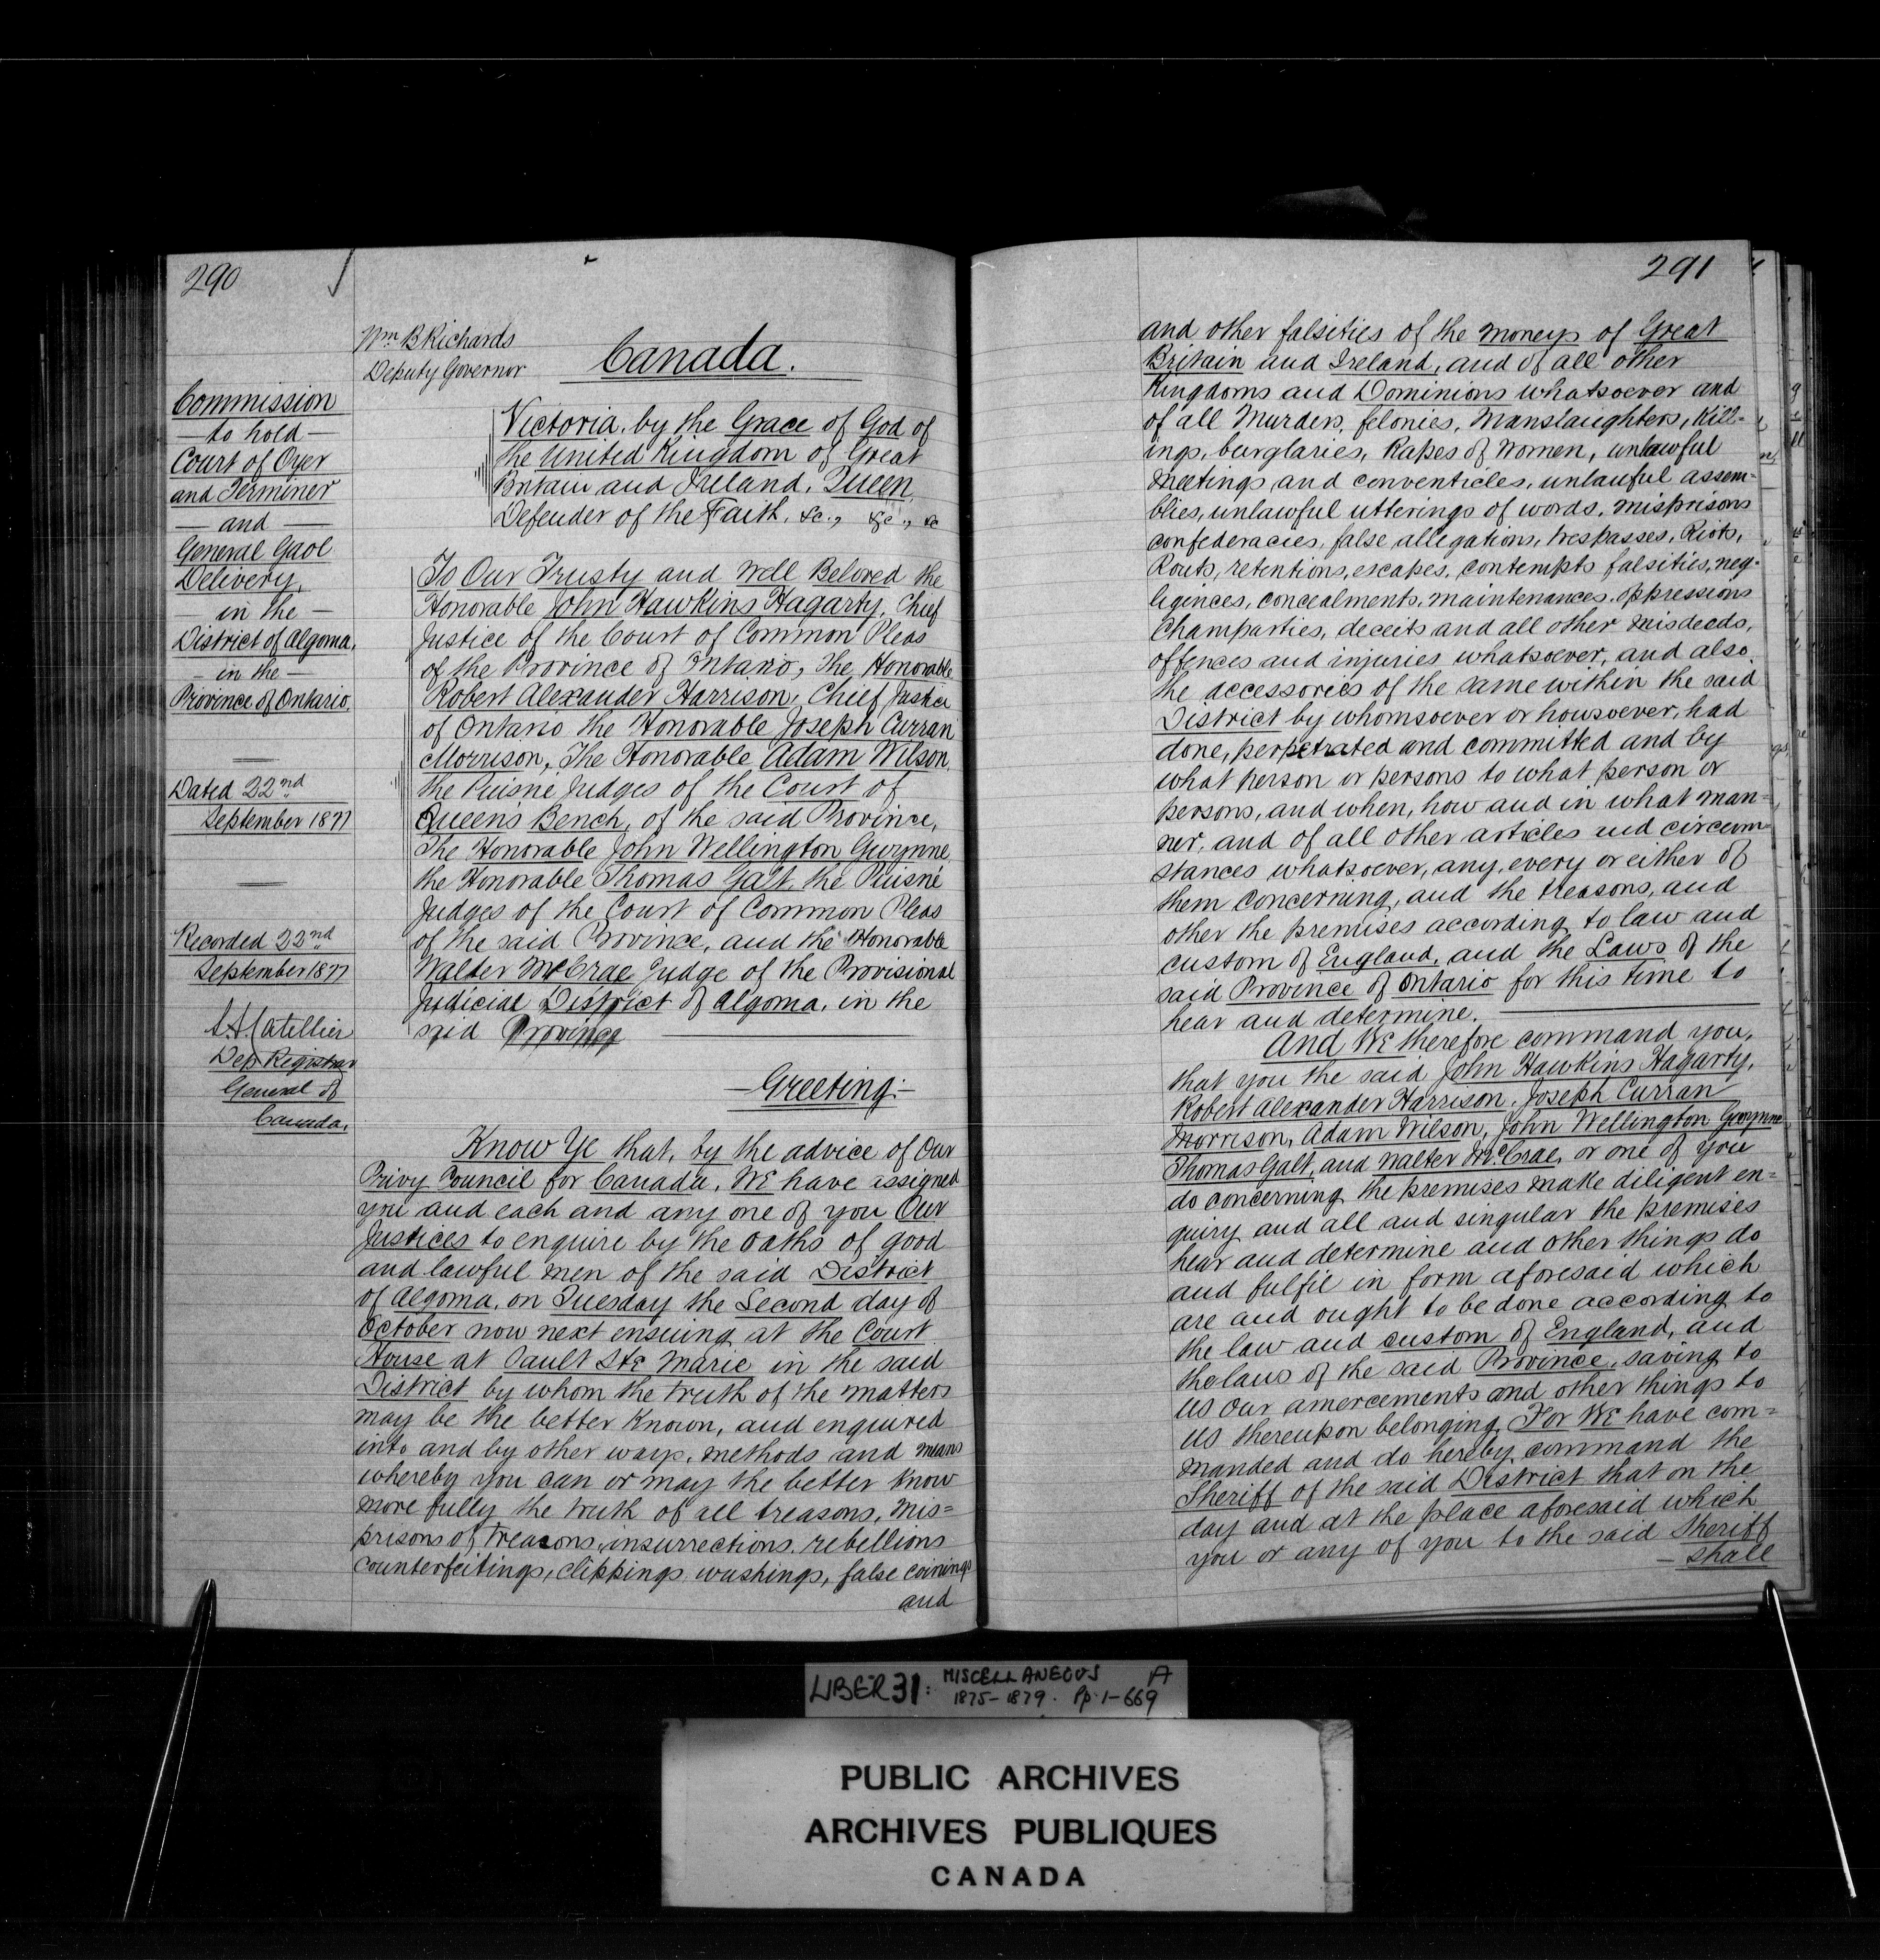 290
Wm B Richards
Deputy Governor
Canada.
Commission
— to hold —
Court of Oyer
and Terminer
— and —
General Gaol
Delivery,
— in the —
District of Algoma,
— in the —
Province of Ontario.
Dated 22nd
September 1877
Recorded 22nd
September 1877
Dep Registrar
General of
Canada.
Victoria, by the Grace of God of
the United Kingdom of Great
Britain and Ireland, Queen,
Defender of the Faith, &c., &c., &c
To Our Trusty and Well Beloved the
Honorable John Hawkins Hagarty, Chief
Justice of the Court of Common Pleas
of the Province of Ontario, The Honorable
Robert Alexander Harrison, Chief Justice
of Ontario the Honorable Joseph Curran
Morrison, The Honorable Adam Wilson,
the Puisné Judges of the Court of
Queen's Bench, of the said Province,
The Honorable John Wellington Gwynne,
the Honorable Thomas Galt, the Puisné
Judges of the Court of Common Pleas
of the said Province, and the Honorable
Walter McCrae Judge of the Provisional
Judicial District of Algoma, in the
said Province
— Greeting:—
Know Ye that, by the advice of Our
Privy Council for Canada, We have assigned
you and each and any one of you Our
Justices to enquire by the oaths of good
and lawful men of the said District
of Algoma, on Tuesday the Second day of
October now next ensuing at the Court
House at Sault Ste Marie in the said
District by whom the truth of the matters
may be the better known, and enquired
into and by other ways, methods and means
whereby you can or may the better know
more fully the truth of all treasons, mis=
prisons of treasons, insurrections, rebellions
counterfeitings, clippings, washings, false coinings
and
291
and other falsities of the moneys of Great
Britain and Ireland, and of all other
Kingdoms and Dominions whatsoever and
of all Murders, felonies, Manslaughters, Kill-
ings, burglaries, Rapes of Women, unlawful
meetings and conventicles, unlawful assem-
blies, unlawful utterings of words, misprisons
confederacies, false allegations, trespasses, Riots,
Routs, retentions, escapes, contempts falsities, neg-
ligences, concealments, maintenances, oppressions
Champarties, deceits and all other misdeeds,
offences and injuries whatsoever, and also
the accessories of the same within the said
District by whomsoever or howsoever, had
done, perpetrated and committed and by
what person or persons to what person or
persons, and when, how and in what man=
ner, and of all other articles and circum=
stances whatsoever, any, every or either of
them concerning, and the treasons, and
other the premises according to law and
custom of England, and the Laws of the
said Province of Ontario for this time to
hear and determine.
And We therefore command you,
that you the said John Hawkins Hagarty,
Robert Alexander Harrison, Joseph Curran
Morrison, Adam Wilson, John Wellington Gwynne
Thomas Galt, and Walter McCrae, or one of you
do concerning the premises make diligent en=
quiry and all and singular the premises
hear and determine and other things do
and fulfil in form aforesaid which
are and ought to be done according to
the law and custom of England, and
the laws of the said Province, saving to
us our amercements and other things to
us thereupon belonging, For We have com=
manded and do hereby command the
Sheriff of the said District that on the
day and at the place aforesaid which
you or any of you to the said Sheriff
— shall
LIBER 31: MISCELLANEOUS A
1875-1879. Pp. 1-669
PUBLIC ARCHIVES
ARCHIVES PUBLIQUES
CANADA